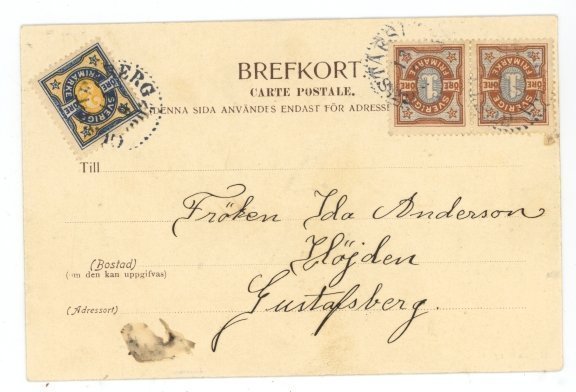 BREFKORT.
CARTE POSTALE.
DENNA SIDA ANVÄNDES ENDAST FÖR ADRESS
SVERIGE
FRIMÄRKE
1 ÖRE
SVERIGE
FRIMÄRKE
1 ÖRE
SVERIGE
FRIMÄRKE
Till
Fröken Ida Anderson
(Bostad)
Höjden
(om den kan uppgifvas)
Gustafsberg.
(Adressort)